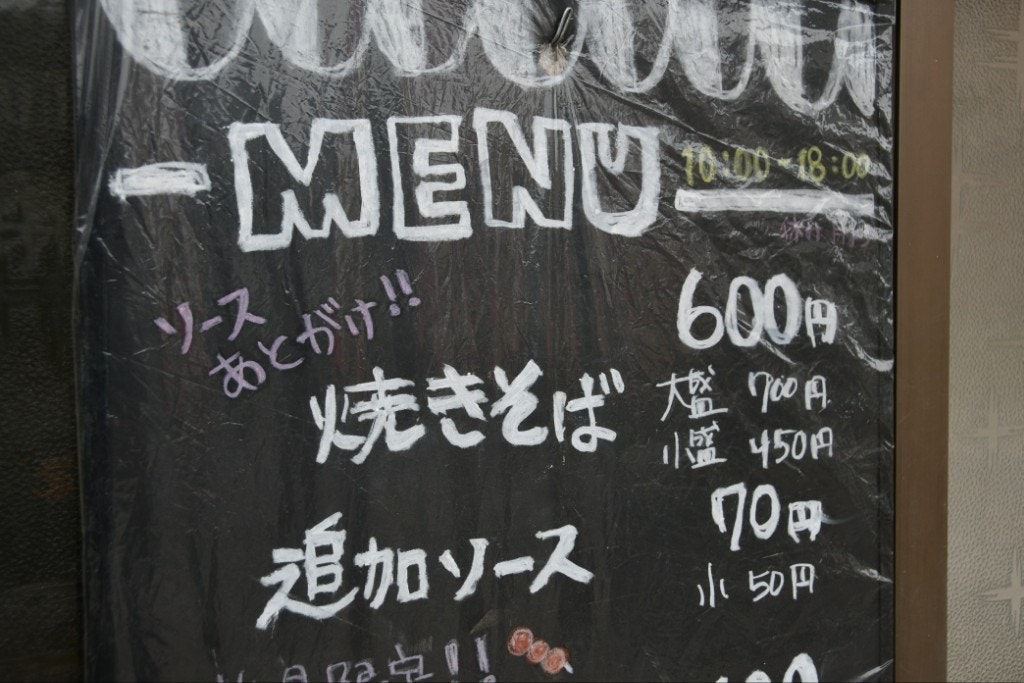 MENU 10:00-18:00
ソース
あとがけ!!
600円
焼きそば
大盛 700円
小盛 450円
追加ソース
70円
小 50円